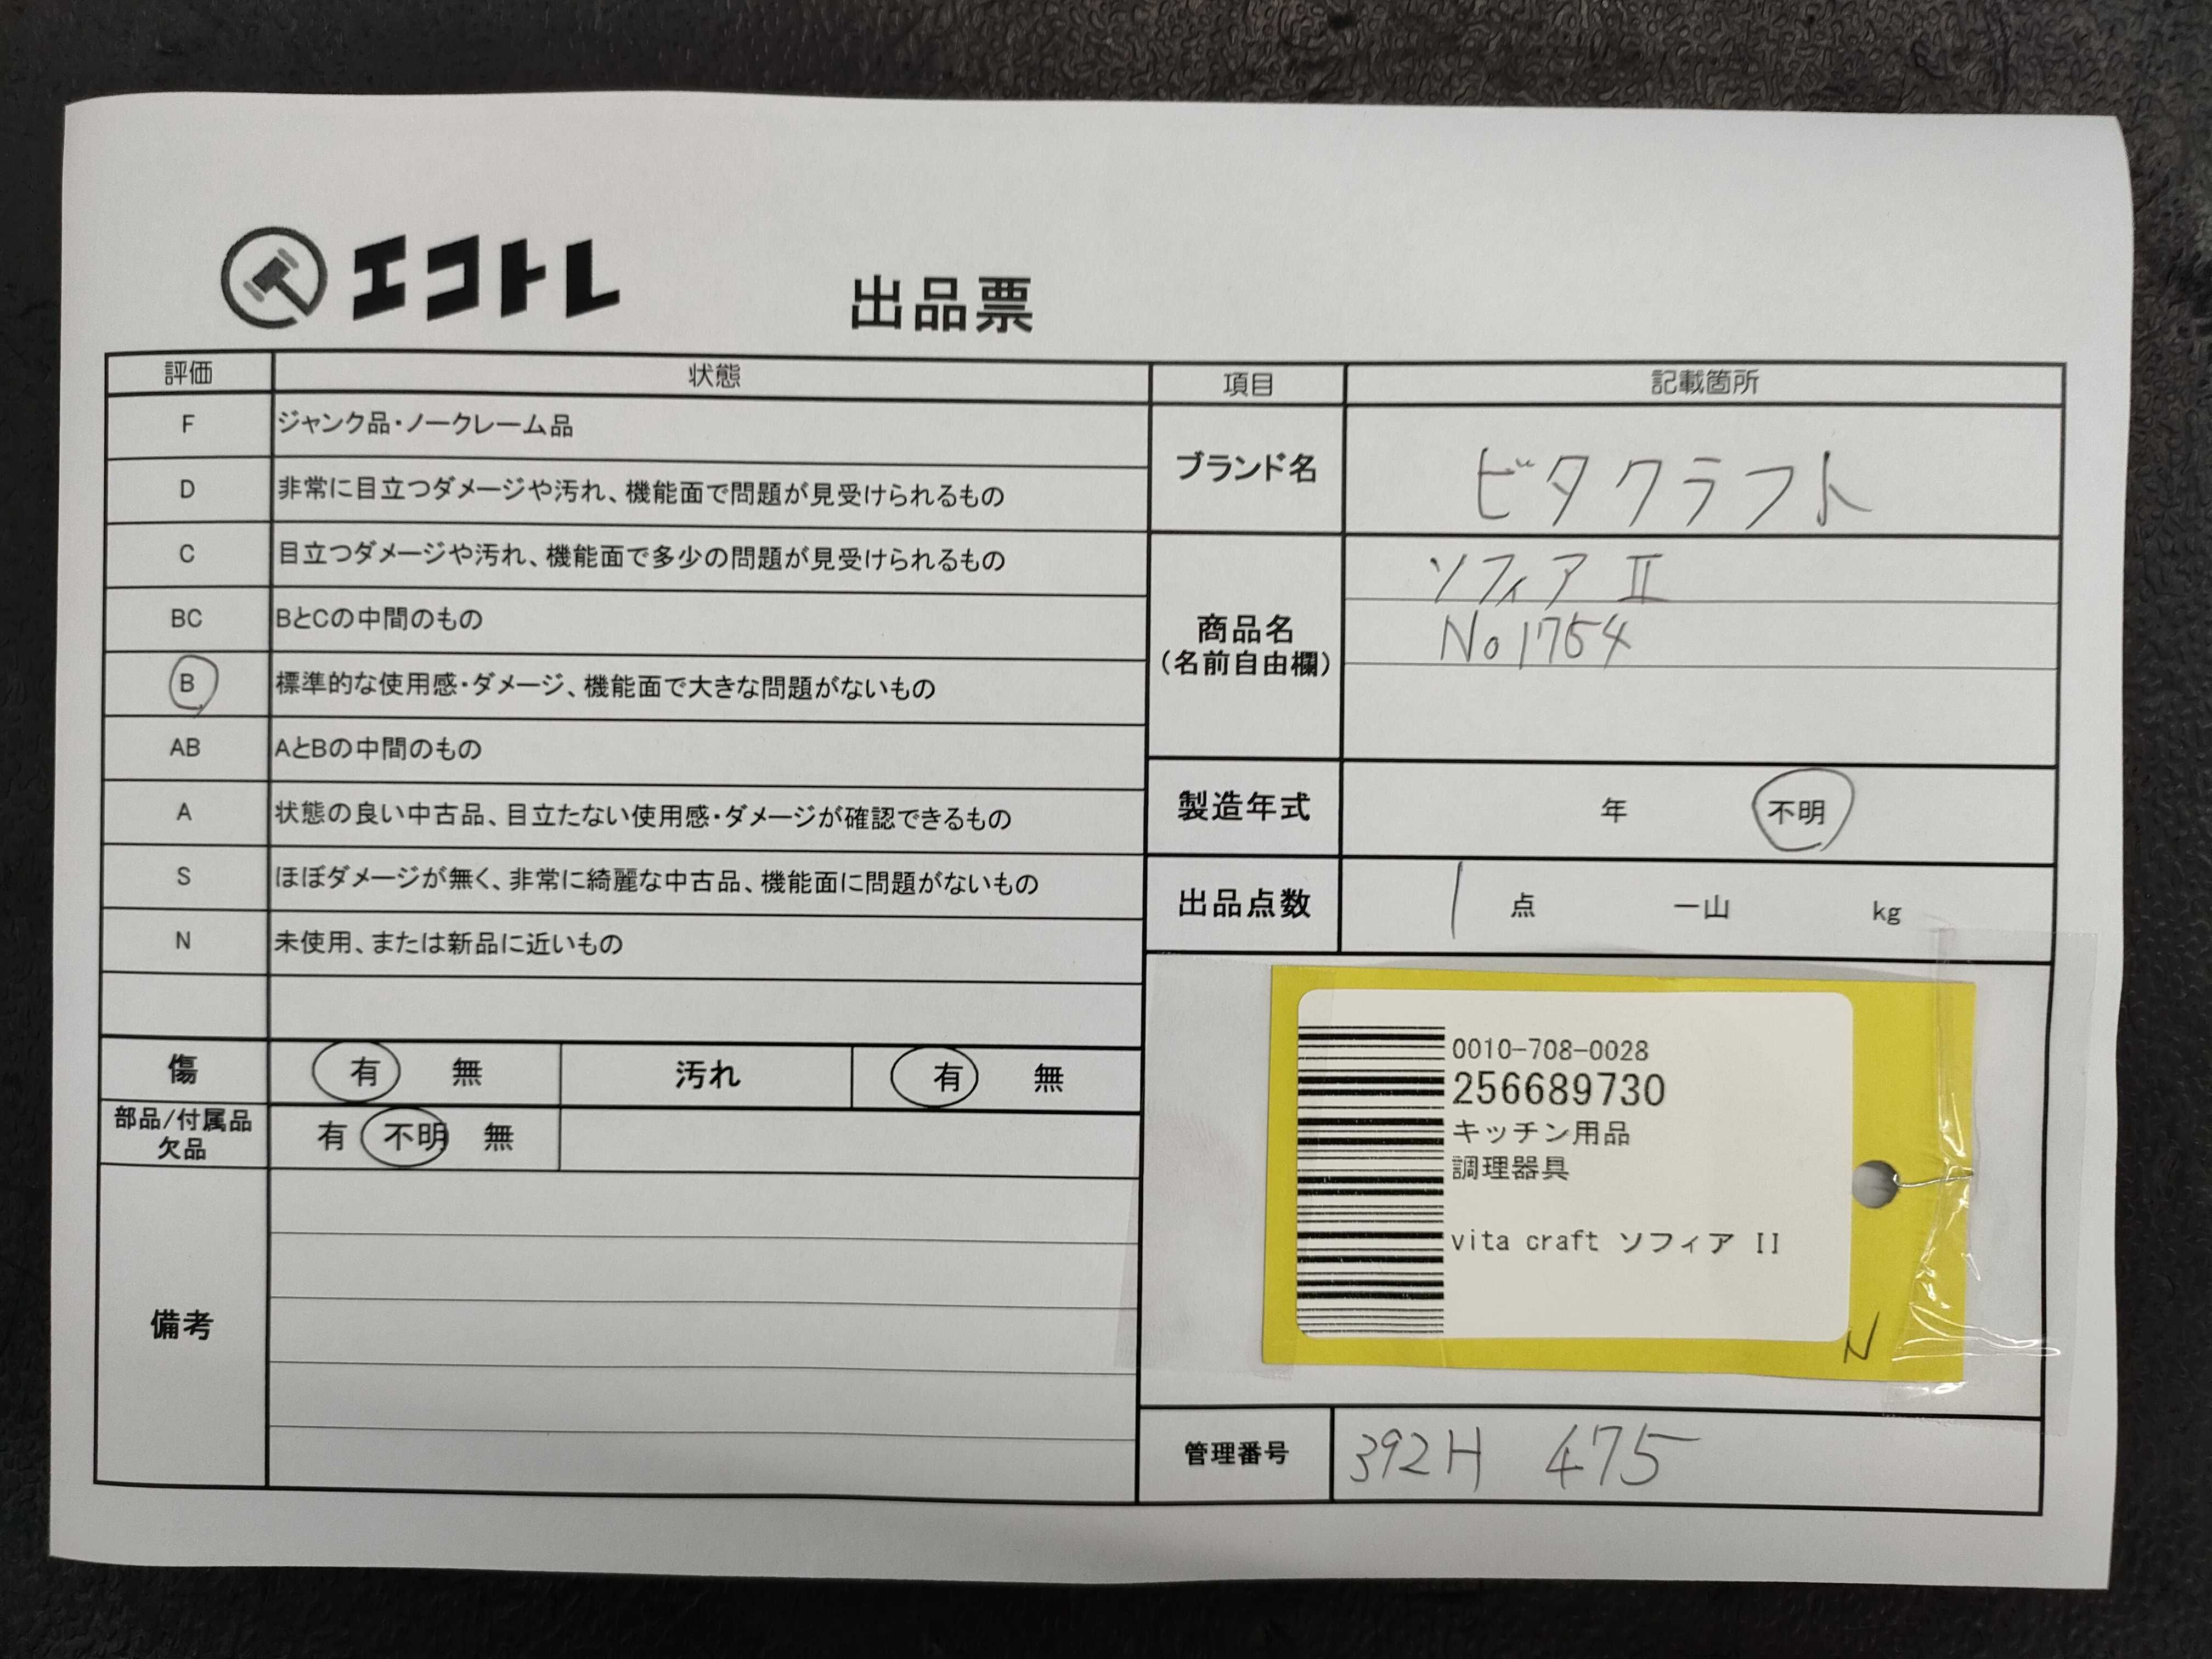 エコトレ
出品票
評価 状態
F ジャンク品・ノークレーム品
D 非常に目立つダメージや汚れ、機能面で問題が見受けられるもの
C 目立つダメージや汚れ、機能面で多少の問題が見受けられるもの
BC BとCの中間のもの
B 標準的な使用感・ダメージ、機能面で大きな問題がないもの
AB AとBの中間のもの
A 状態の良い中古品、目立たない使用感・ダメージが確認できるもの
S ほぼダメージが無く、非常に綺麗な中古品、機能面に問題がないもの
N 未使用、または新品に近いもの
傷 有 無 汚れ 有 無
部品/付属品
欠品
有 不明 無
備考
項目 記載箇所
ブランド名 ビタクラフト
商品名
(名前自由欄)
ソフィア II
No 1754
製造年式 年 不明
出品点数 1 点 一山 kg
0010-708-0028
256689730
キッチン用品
調理器具
vita craft ソフィア II
N
管理番号 392H 475